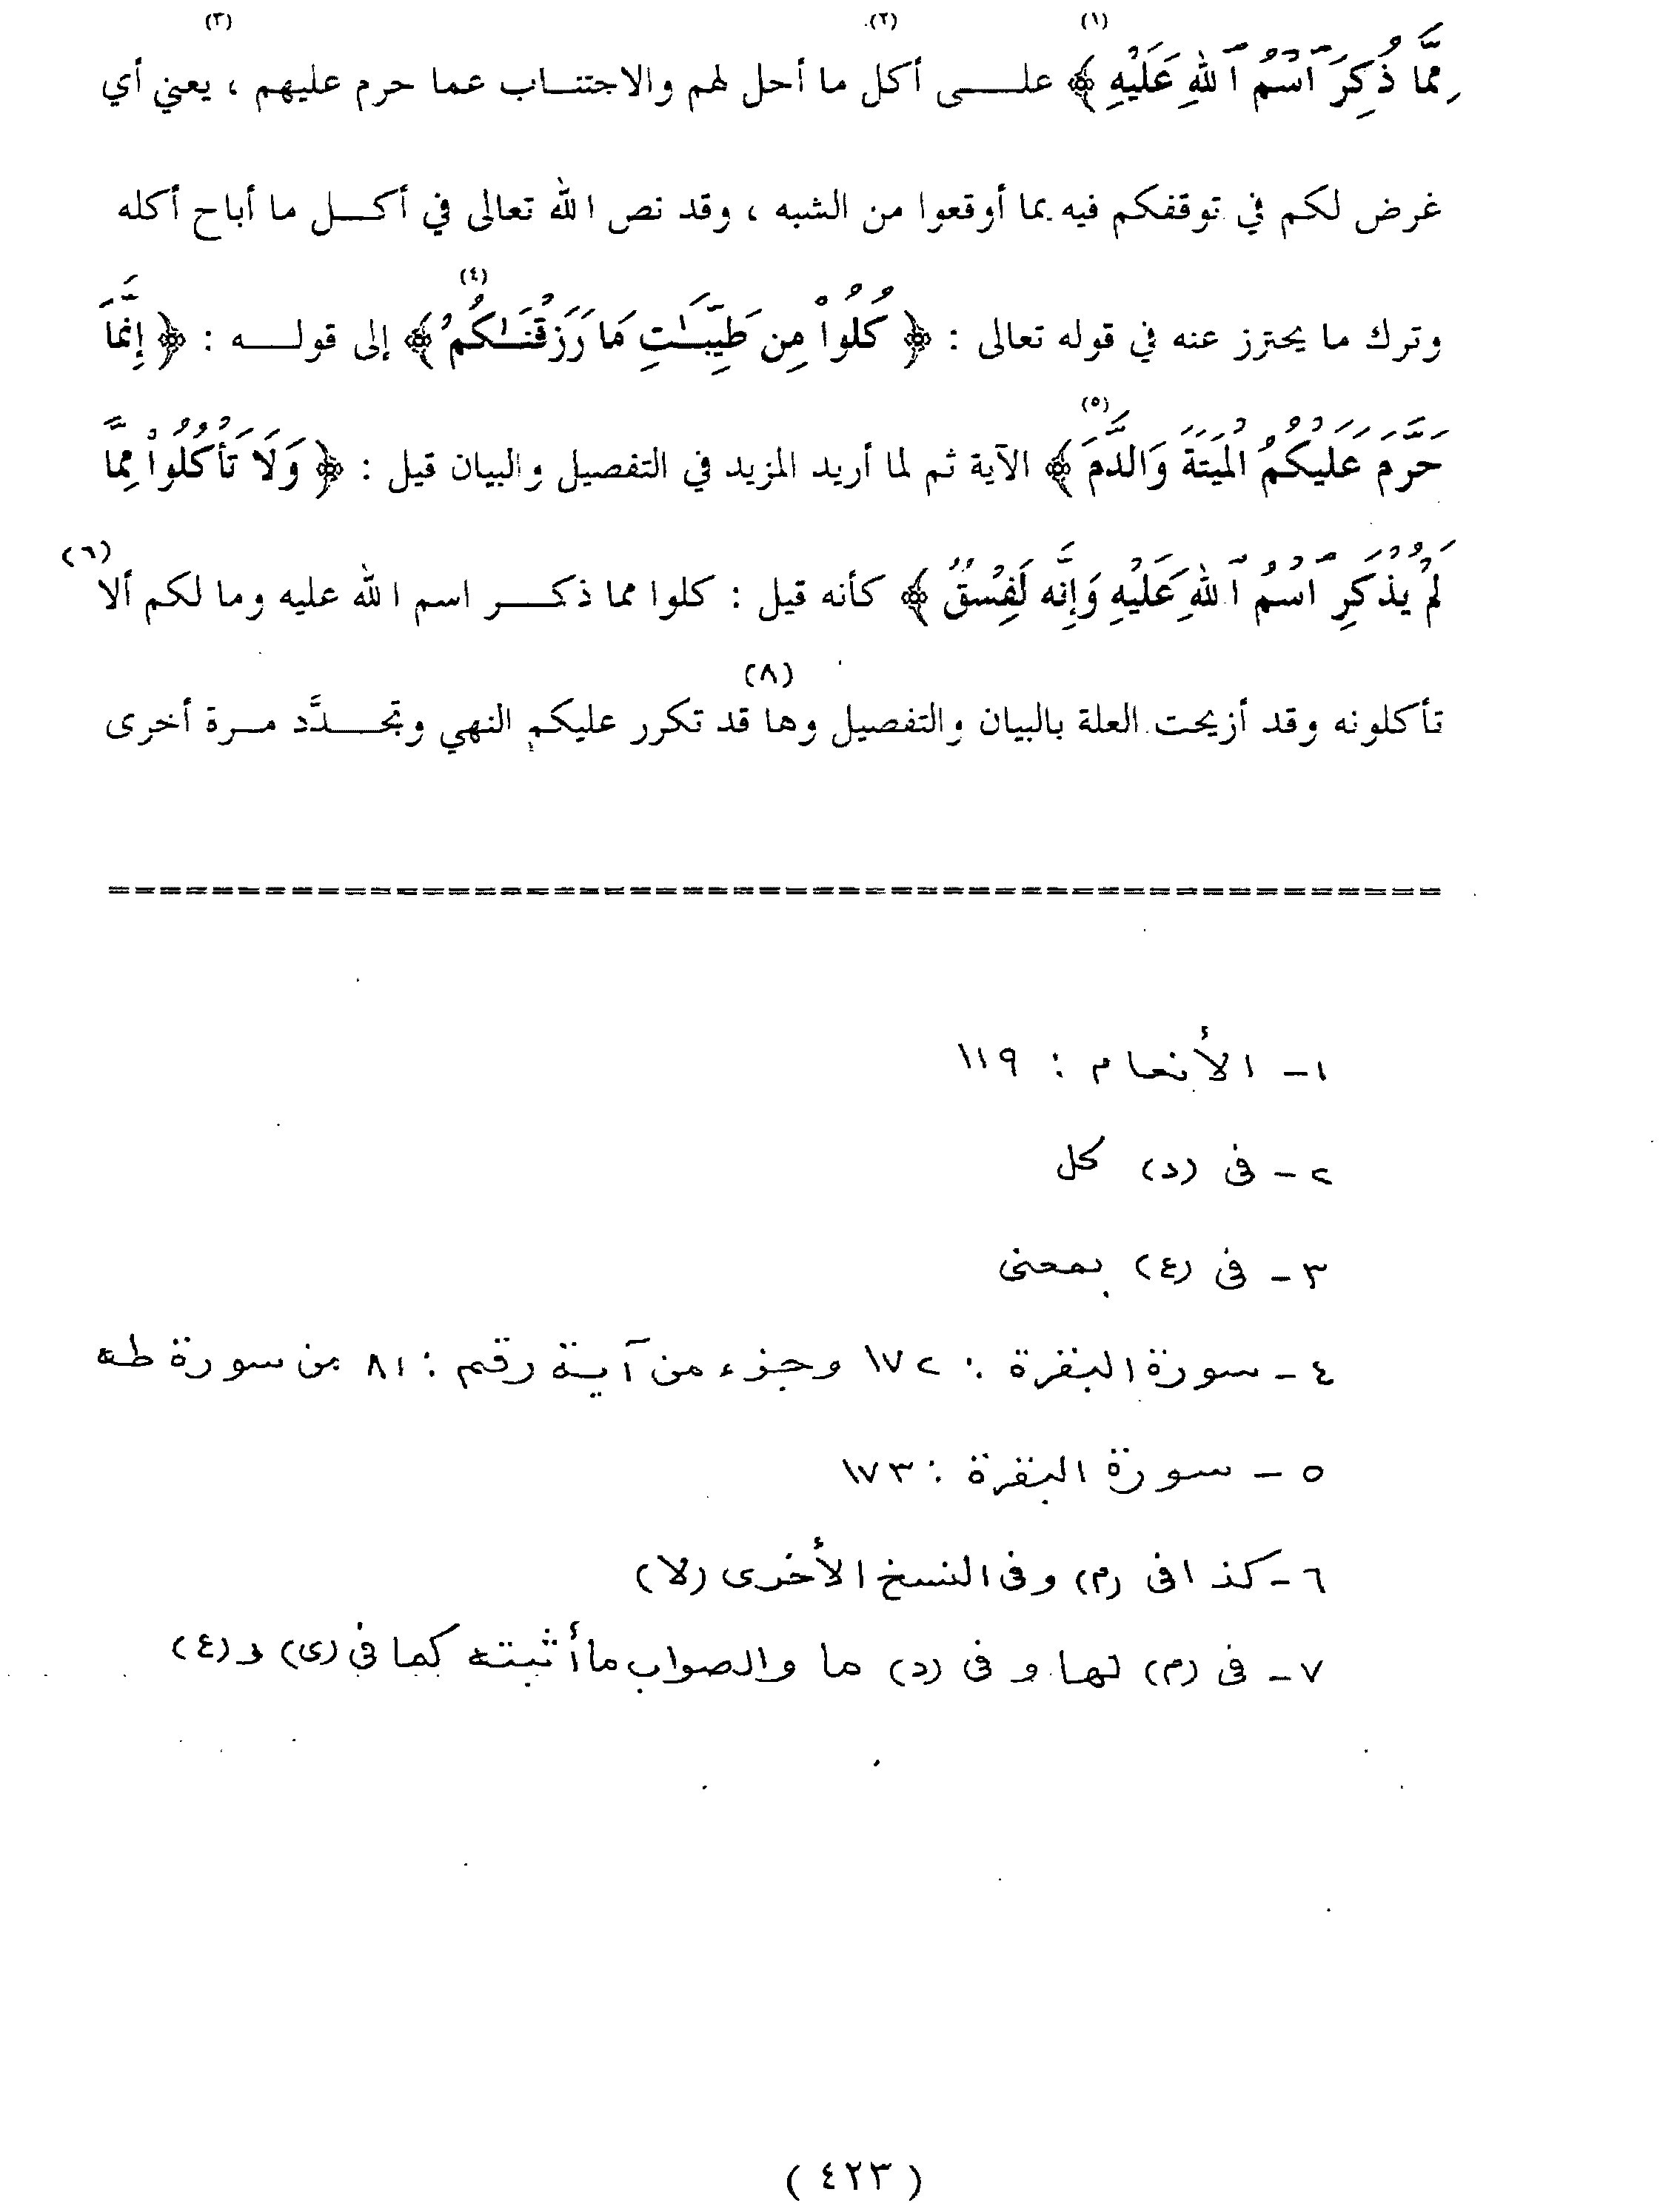 (١) (٢) (٣)
مِمَّا ذُكِرَ ٱسْمُ ٱللَّهِ عَلَيْهِ ﴾ علـــى أكل ما أحل لهم والاجتنـاب عما حرم عليهم ، يعني أي
غرض لكم في توقفكم فيه بما أوقعوا من الشبه ، وقد نص الله تعالى في أكـــل ما أباح أكله
(٤)
وترك ما يحترز عنه في قوله تعالى : ﴿ كُلُواْ مِن طَيِّبَـٰتِ مَا رَزَقْنَـٰكُمْ ﴾ إلى قولـــه : ﴿ إِنَّمَا
(٥)
حَرَّمَ عَلَيْكُمُ الْمَيْتَةَ وَالدَّمَ ﴾ الآية ثم لما أريد المزيد في التفصيل والبيان قيل : ﴿ وَلَا تَأْكُلُواْ مِمَّا
(٦)
لَمْ يُذْكَرِ ٱسْمُ ٱللَّهِ عَلَيْهِ وَإِنَّه لَفِسْقٌ ﴾ كأنه قيل : كلوا مما ذكـــر اسم الله عليه وما لكم ألا
(٨)
تأكلونه وقد أزيحت العلة بالبيان والتفصيل وها قد تكرر عليكم النهي وتجـــدَّد مـرة أخرى
====================================================
١ - الأنعام : ١١٩
٢ - فى (د) كل
٣ - فى (ع) بمعنى
٤ - سورة البقرة : ١٧٢ وجزء من آية رقم : ٨١ من سورة طه
٥ - سورة البقرة : ١٧٣
٦ - كذا فى (م) وفى النسخ الأخرى (لا)
٧ - فى (م) لها و فى (د) ما والصواب ما أثبته كما فى (ى) و (ع)
( ٤٢٣ )